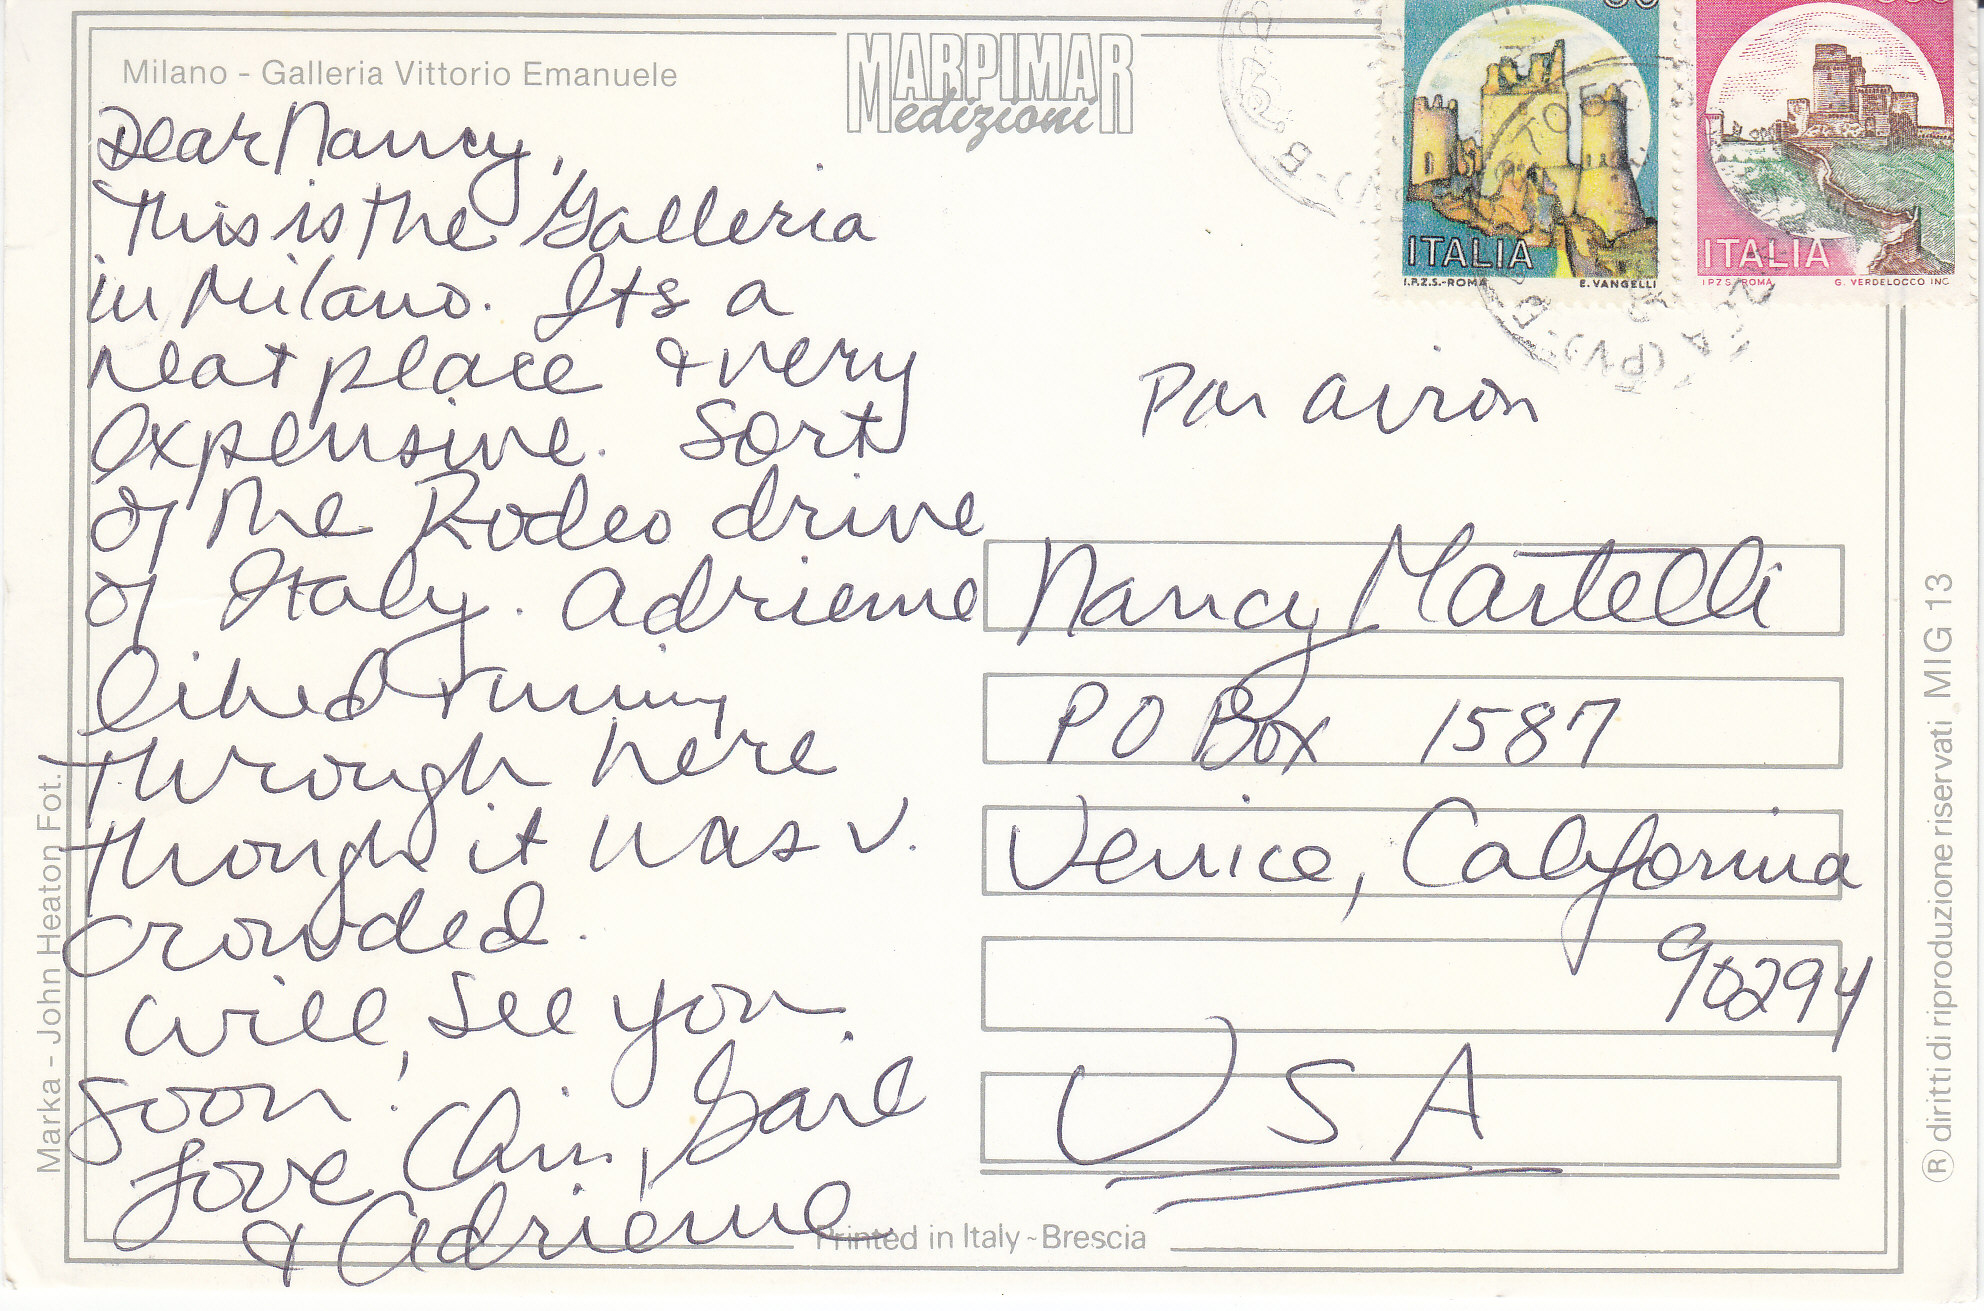 Milano - Galleria Vittorio Emanuele
MARPIMAR
edizioni
Dear Nancy,
This is the Galleria
in Milano. Its a
neat place & very
expensive. Sort
of the Rodeo drive
of Italy. Adrienne
liked running
through here
though it was v.
crowded.
Will see you
soon!
Love Chris, Gail
& Adrienne
Par avion
Nancy Martelli
PO Box 1587
Venice, California
90294
USA
ITALIA
I.P.Z.S.-ROMA E. VANGELLI
ITALIA
I.P.Z.S. ROMA G. VERDELOCCO INC
Marka - John Heaton Fot.
Printed in Italy - Brescia
® diritti di riproduzione riservati MIG 13